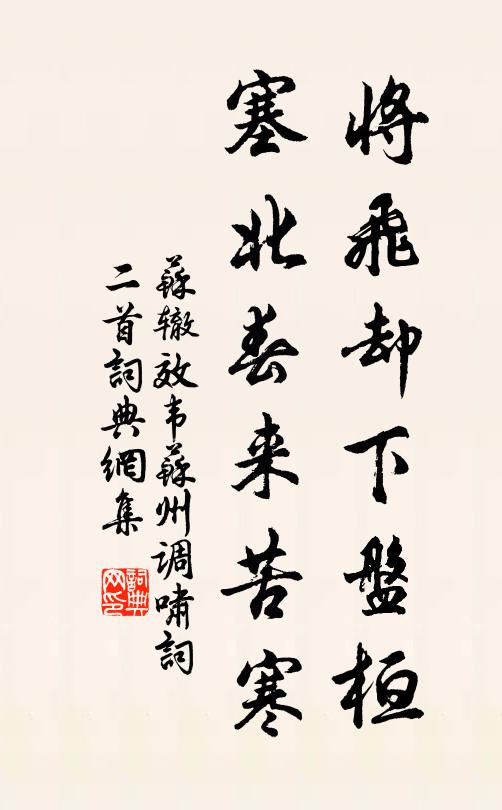 將飛却下盤桓
塞北春来苦寒
蘇辙效韦蘇州调啸詞
二首詞典網集
詞典
网印